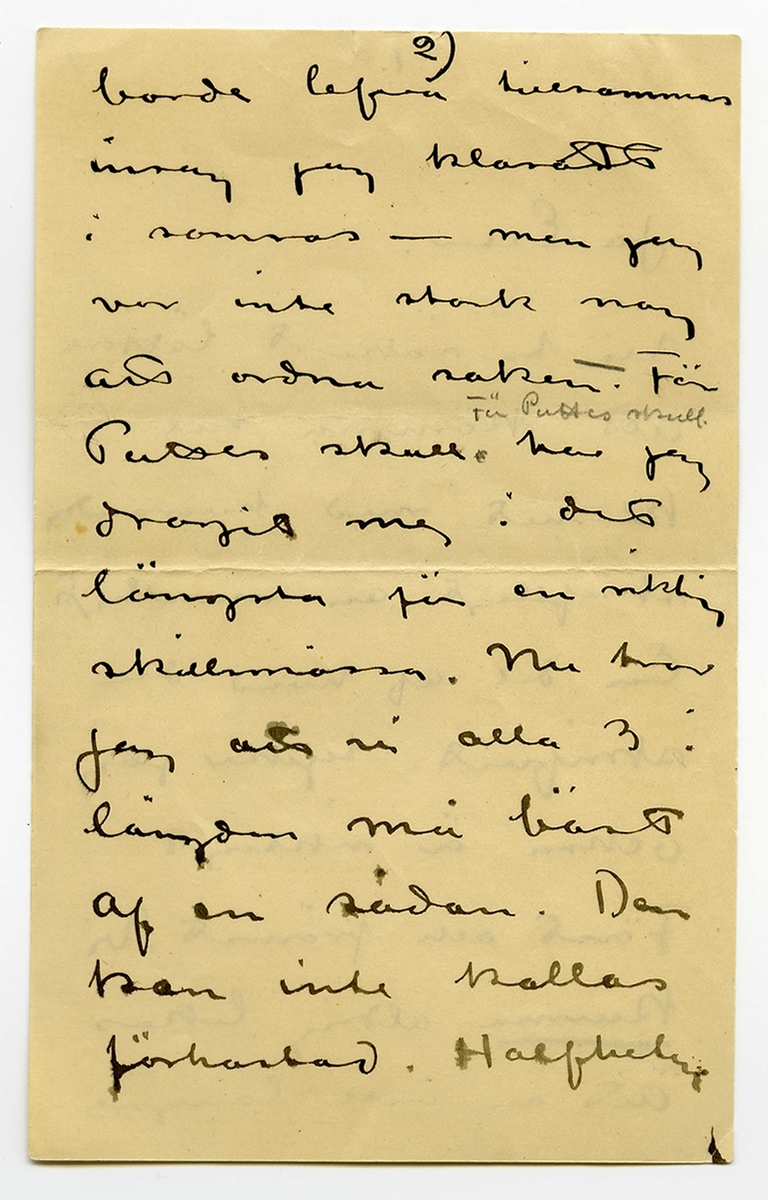 2)
borde lefva tillsammas
insåg jag klarast
i somras — men jag
var inte stark nog
att ordna saken. För
För Puttes skull.
Puttes skull. har jag
dragit mej i det
längsta för en riktig
skilsmässa. Nu tror
jag att vi alla 3 i
längden må bäst
af en sådan. Den
kan inte kallas
förhastad. Halfhet